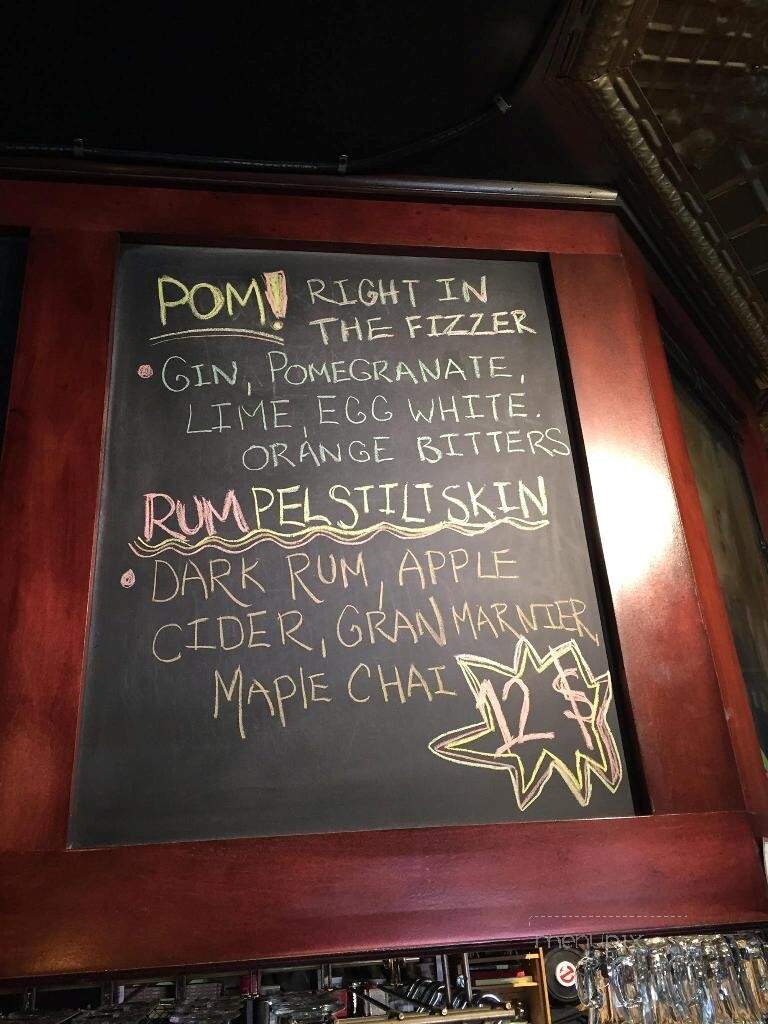 POM! RIGHT IN
THE FIZZER
• GIN, POMEGRANATE,
LIME, EGG WHITE.
ORANGE BITTERS
RUMPELSTILTSKIN
• DARK RUM, APPLE
CIDER, GRAN MARNIER,
MAPLE CHAI
12 $
menupix